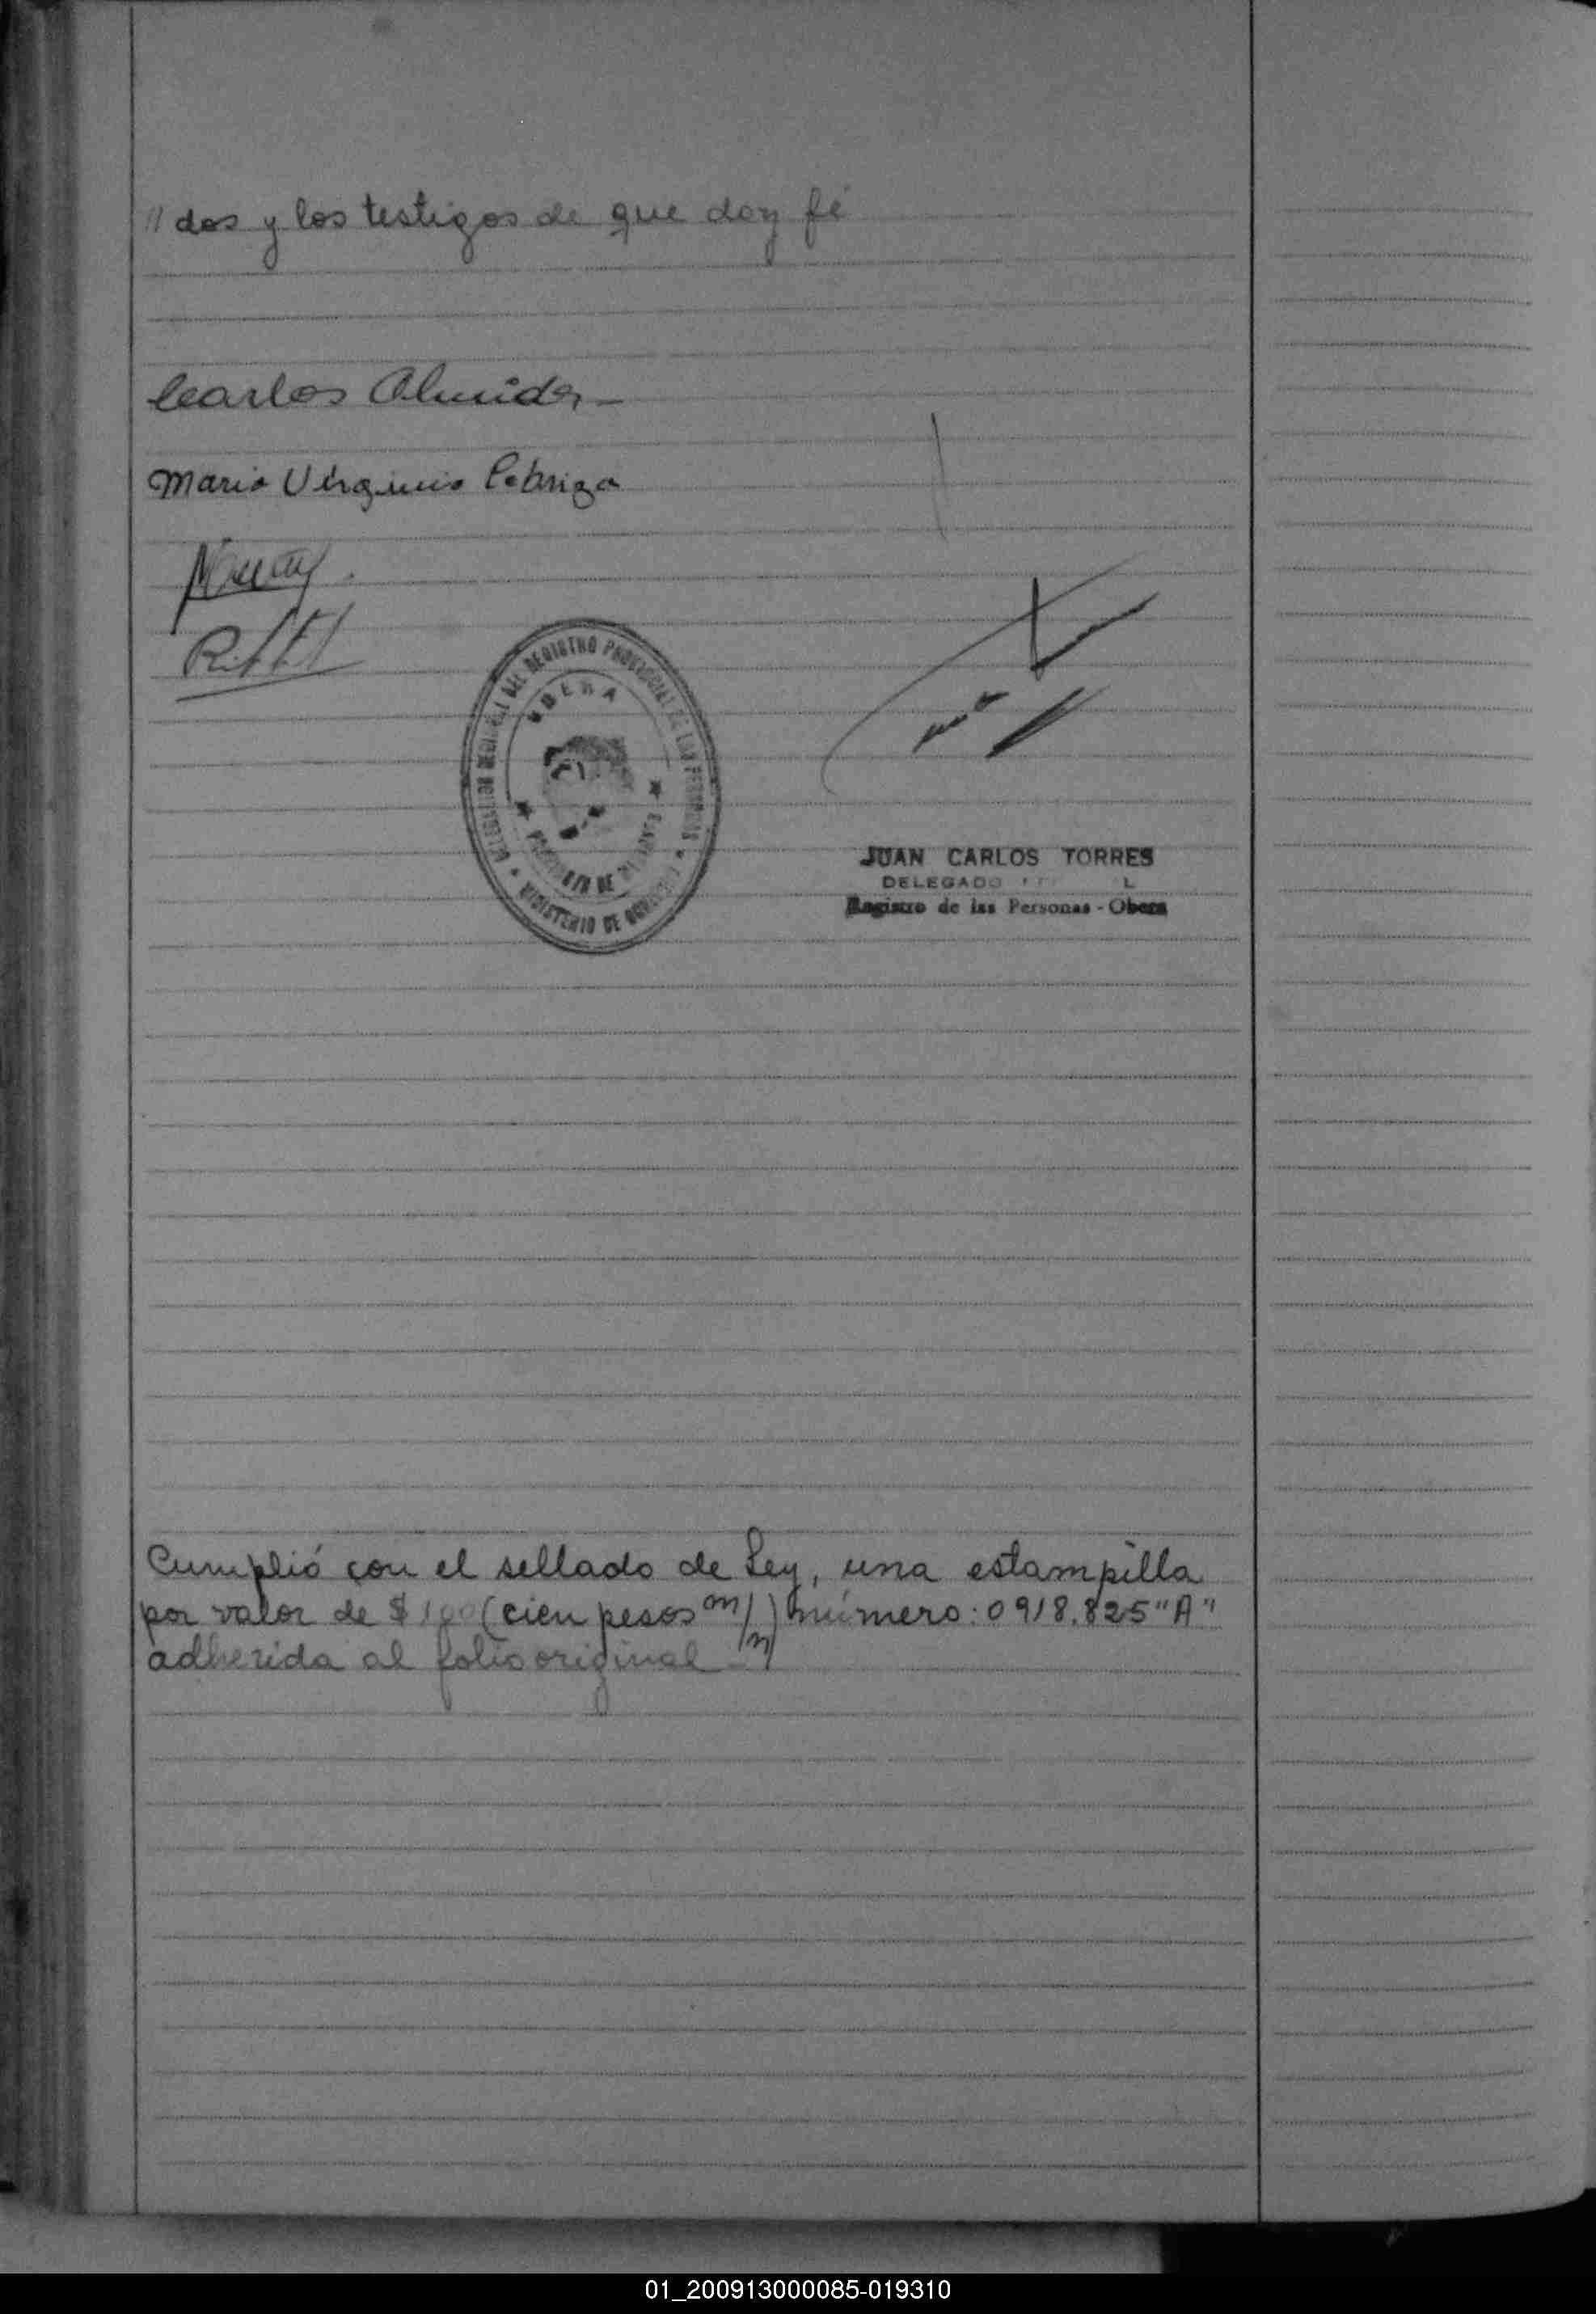 // dos y los testigos de que doy fé
Carlos Almida
Maria Virginia Cabriza
DELEGACION REGIONAL DEL REGISTRO PROVINCIAL DE LAS PERSONAS
OBERA
PROVINCIA DE MISIONES
MINISTERIO DE GOBIERNO
JUAN CARLOS TORRES
DELEGADO
Registro de las Personas - Obera
Cumplió con el sellado de Ley, una estampilla
por valor de $ 100 (cien pesos m/n) número: 0918.825 "A"
adherida al folio original
01_200913000085-019310